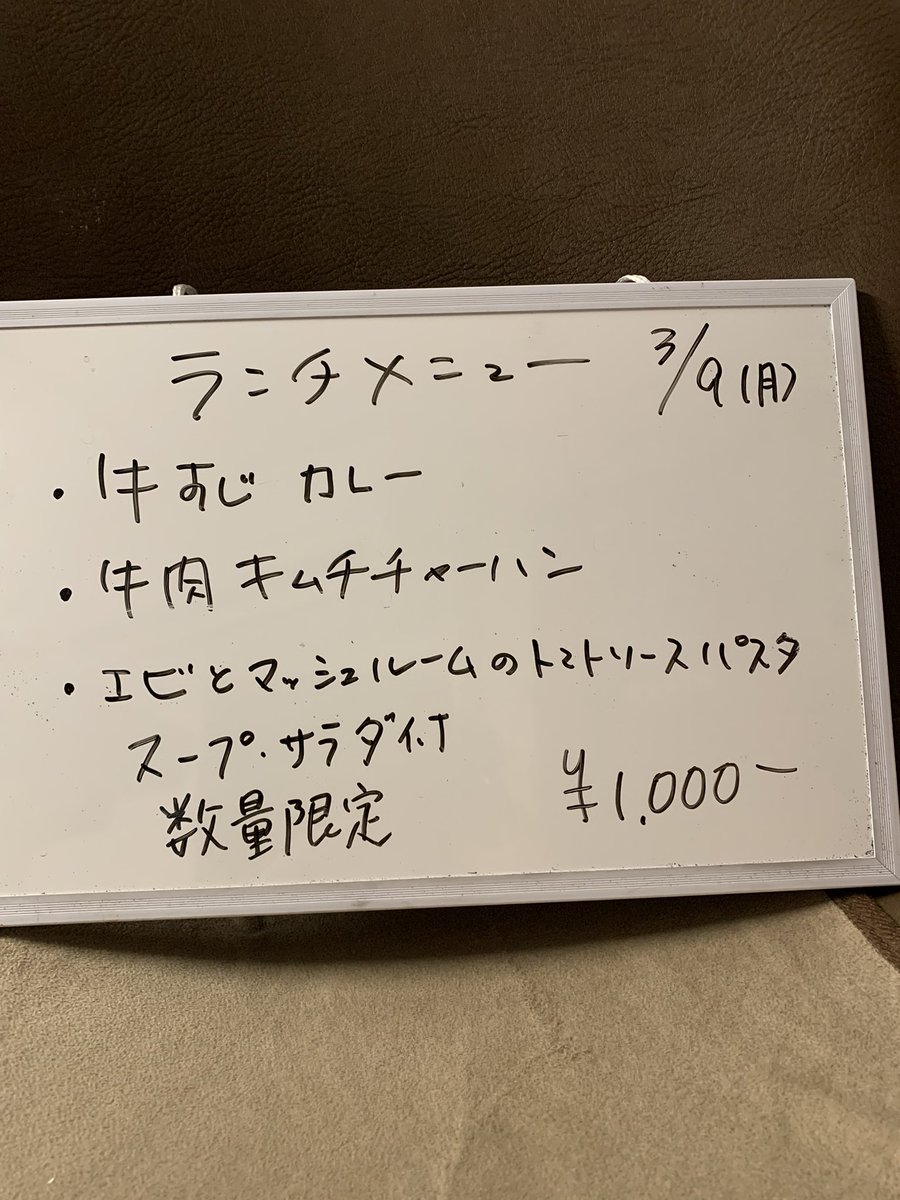 ランチメニュー 3/9(月)
・牛すじ カレー
・牛肉キムチチャーハン
・エビとマッシュルームのトマトソースパスタ
スープ・サラダ付
数量限定 ¥1,000ー